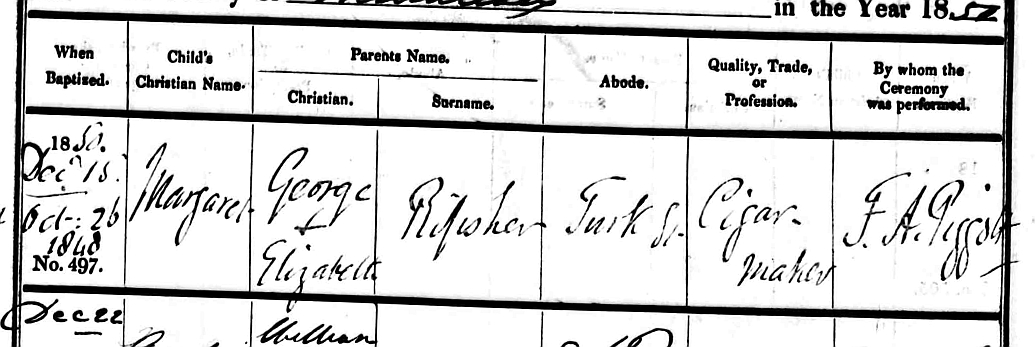 in the Year 1852
When Baptized.
Child's Christian Name.
Parents Name.
Christian.
Surname.
Abode.
Quality, Trade, or Profession.
By whom the Ceremony was performed.
1850.
Decr 15.
Oct: 26
1848
No. 497.
Margaret
George
&
Elizabeth
Turk St.
Cigar
maker
F. A. Piggott
Dec 22
William